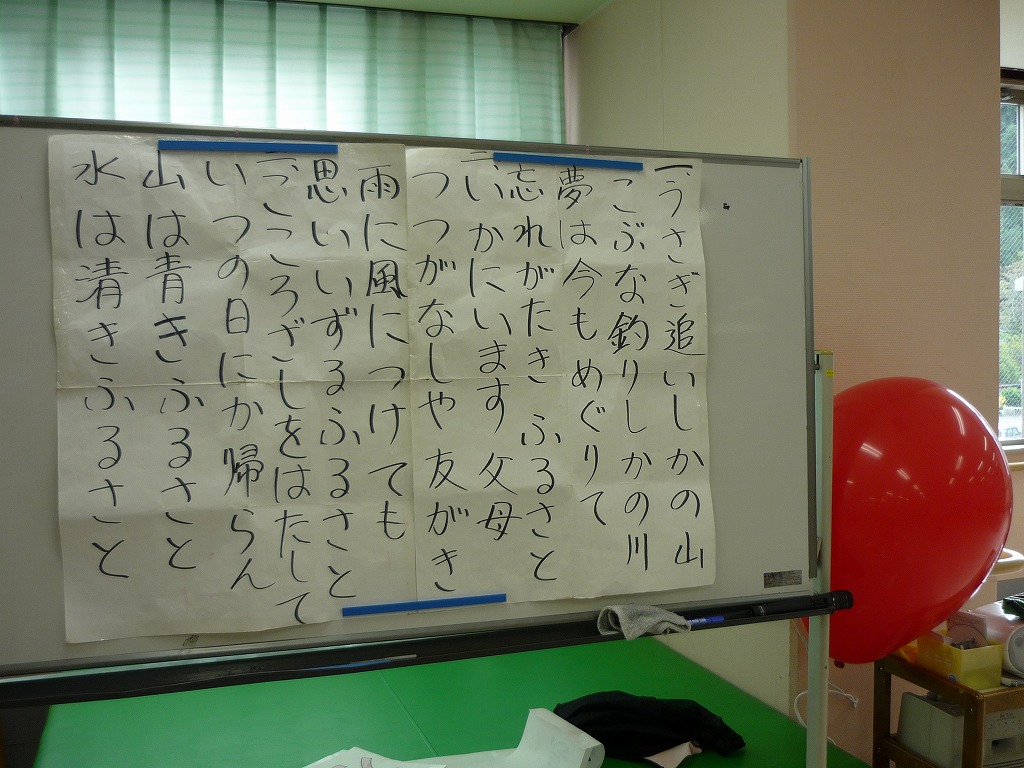 一、うさぎ追いしかの山
こぶな釣りしかの川
夢は今もめぐりて
忘れがたき ふるさと
二、いかにいます 父母
つつがなしや 友がき
雨に風につけても
思いいずるふるさと
三、こころざしをはたして
いつの日にか帰らん
山は青きふるさと
水は清きふるさと